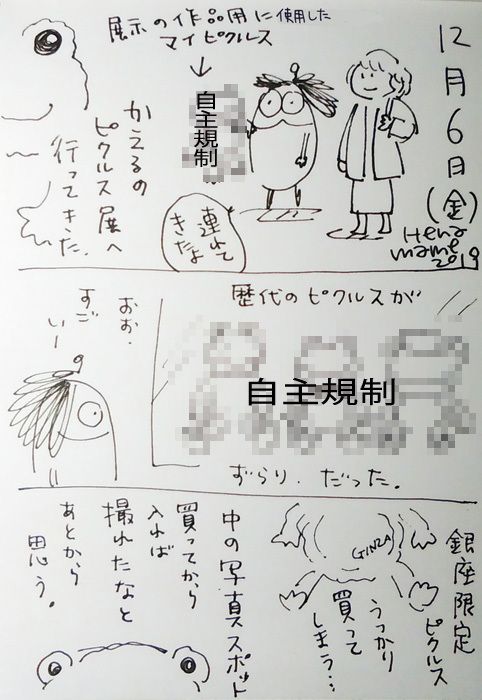 12月6日(金)
Hena
mame
2019
展示の作品用に使用した
マイピクルス
自主規制
連れて
きたよ
かえるの
ピクルス展へ
行ってきた。
歴代のピクルスが
自主規制
ずらり.だった。
おお.
すご
いー
銀座限定
ピクルス
GINZA
うっかり
買って
しまう…
中の写真スポット
買ってから
入れば
撮れたなと
あとから
思う。